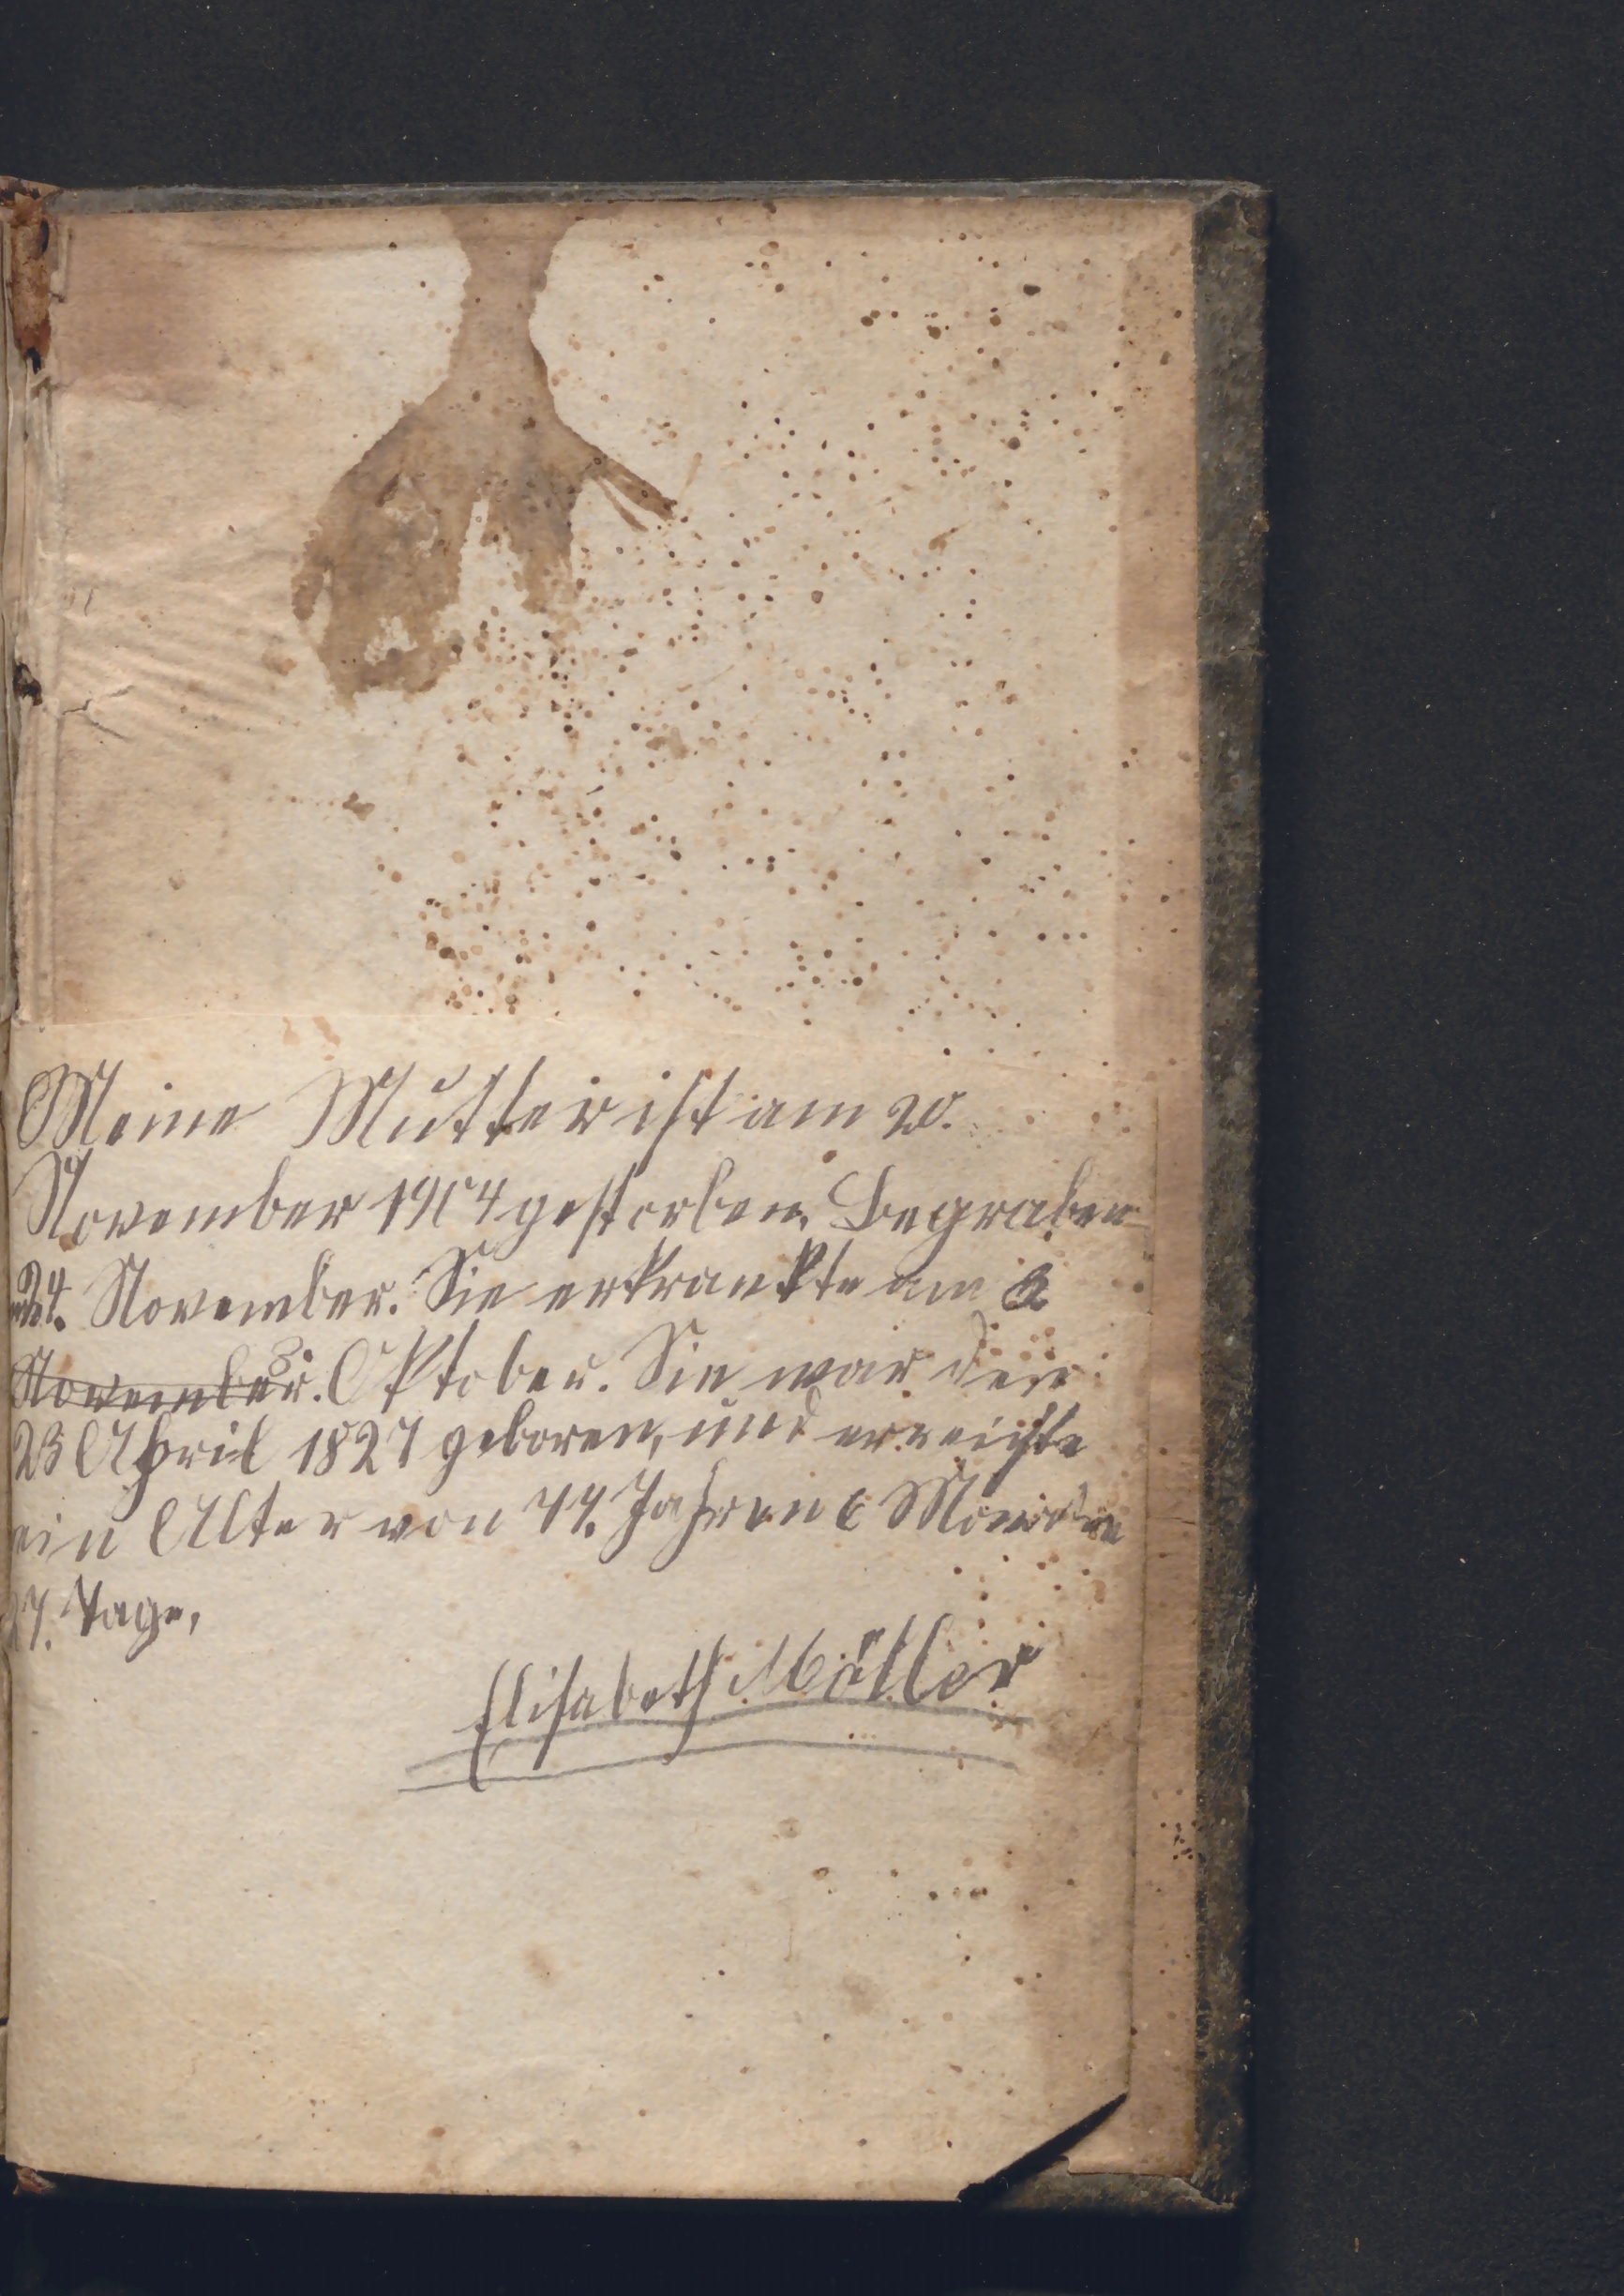 Meine Mutter ist am 20.
November 1904 gestorben. Begraben
24. November. Sie erkrankte am
November. 8. Oktober. Sie war den
23 April 1827 geboren, und erreichte
ein Alter von 77. Jahren 6 Monaten
27. Tage,
Elisabeth Möller